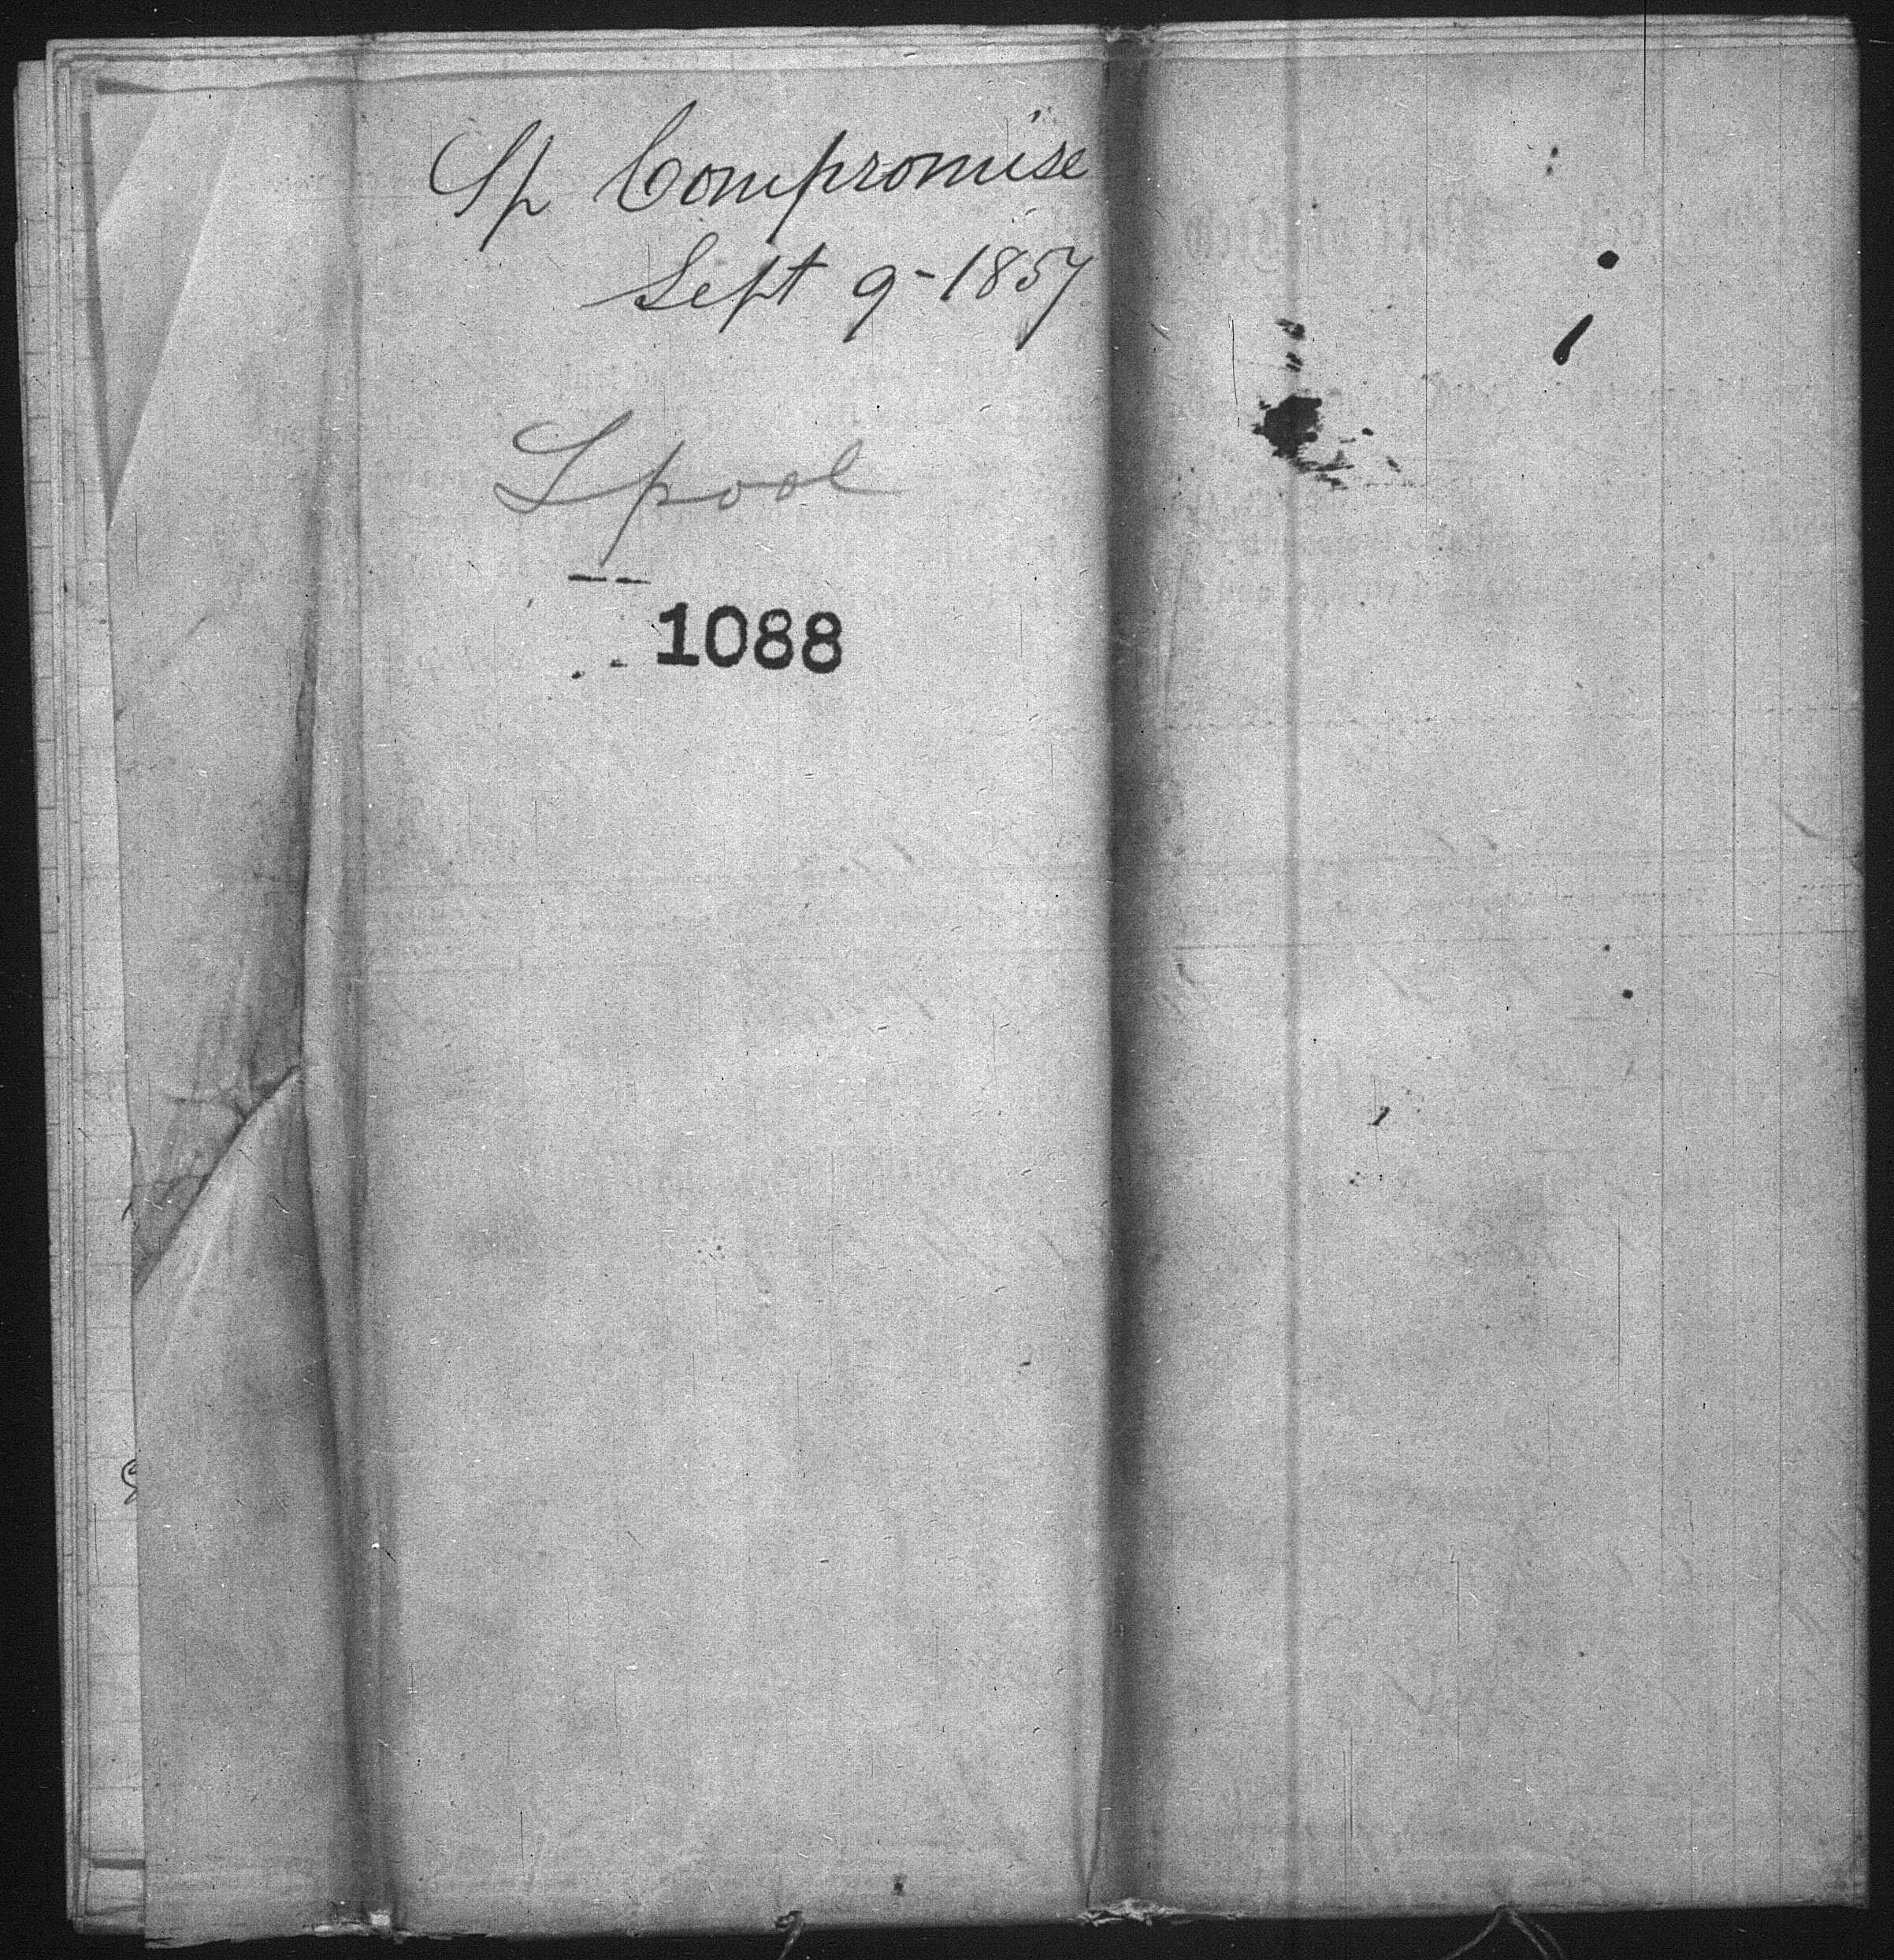 Sp Compromise
Sept 9-1857
Spool
1088